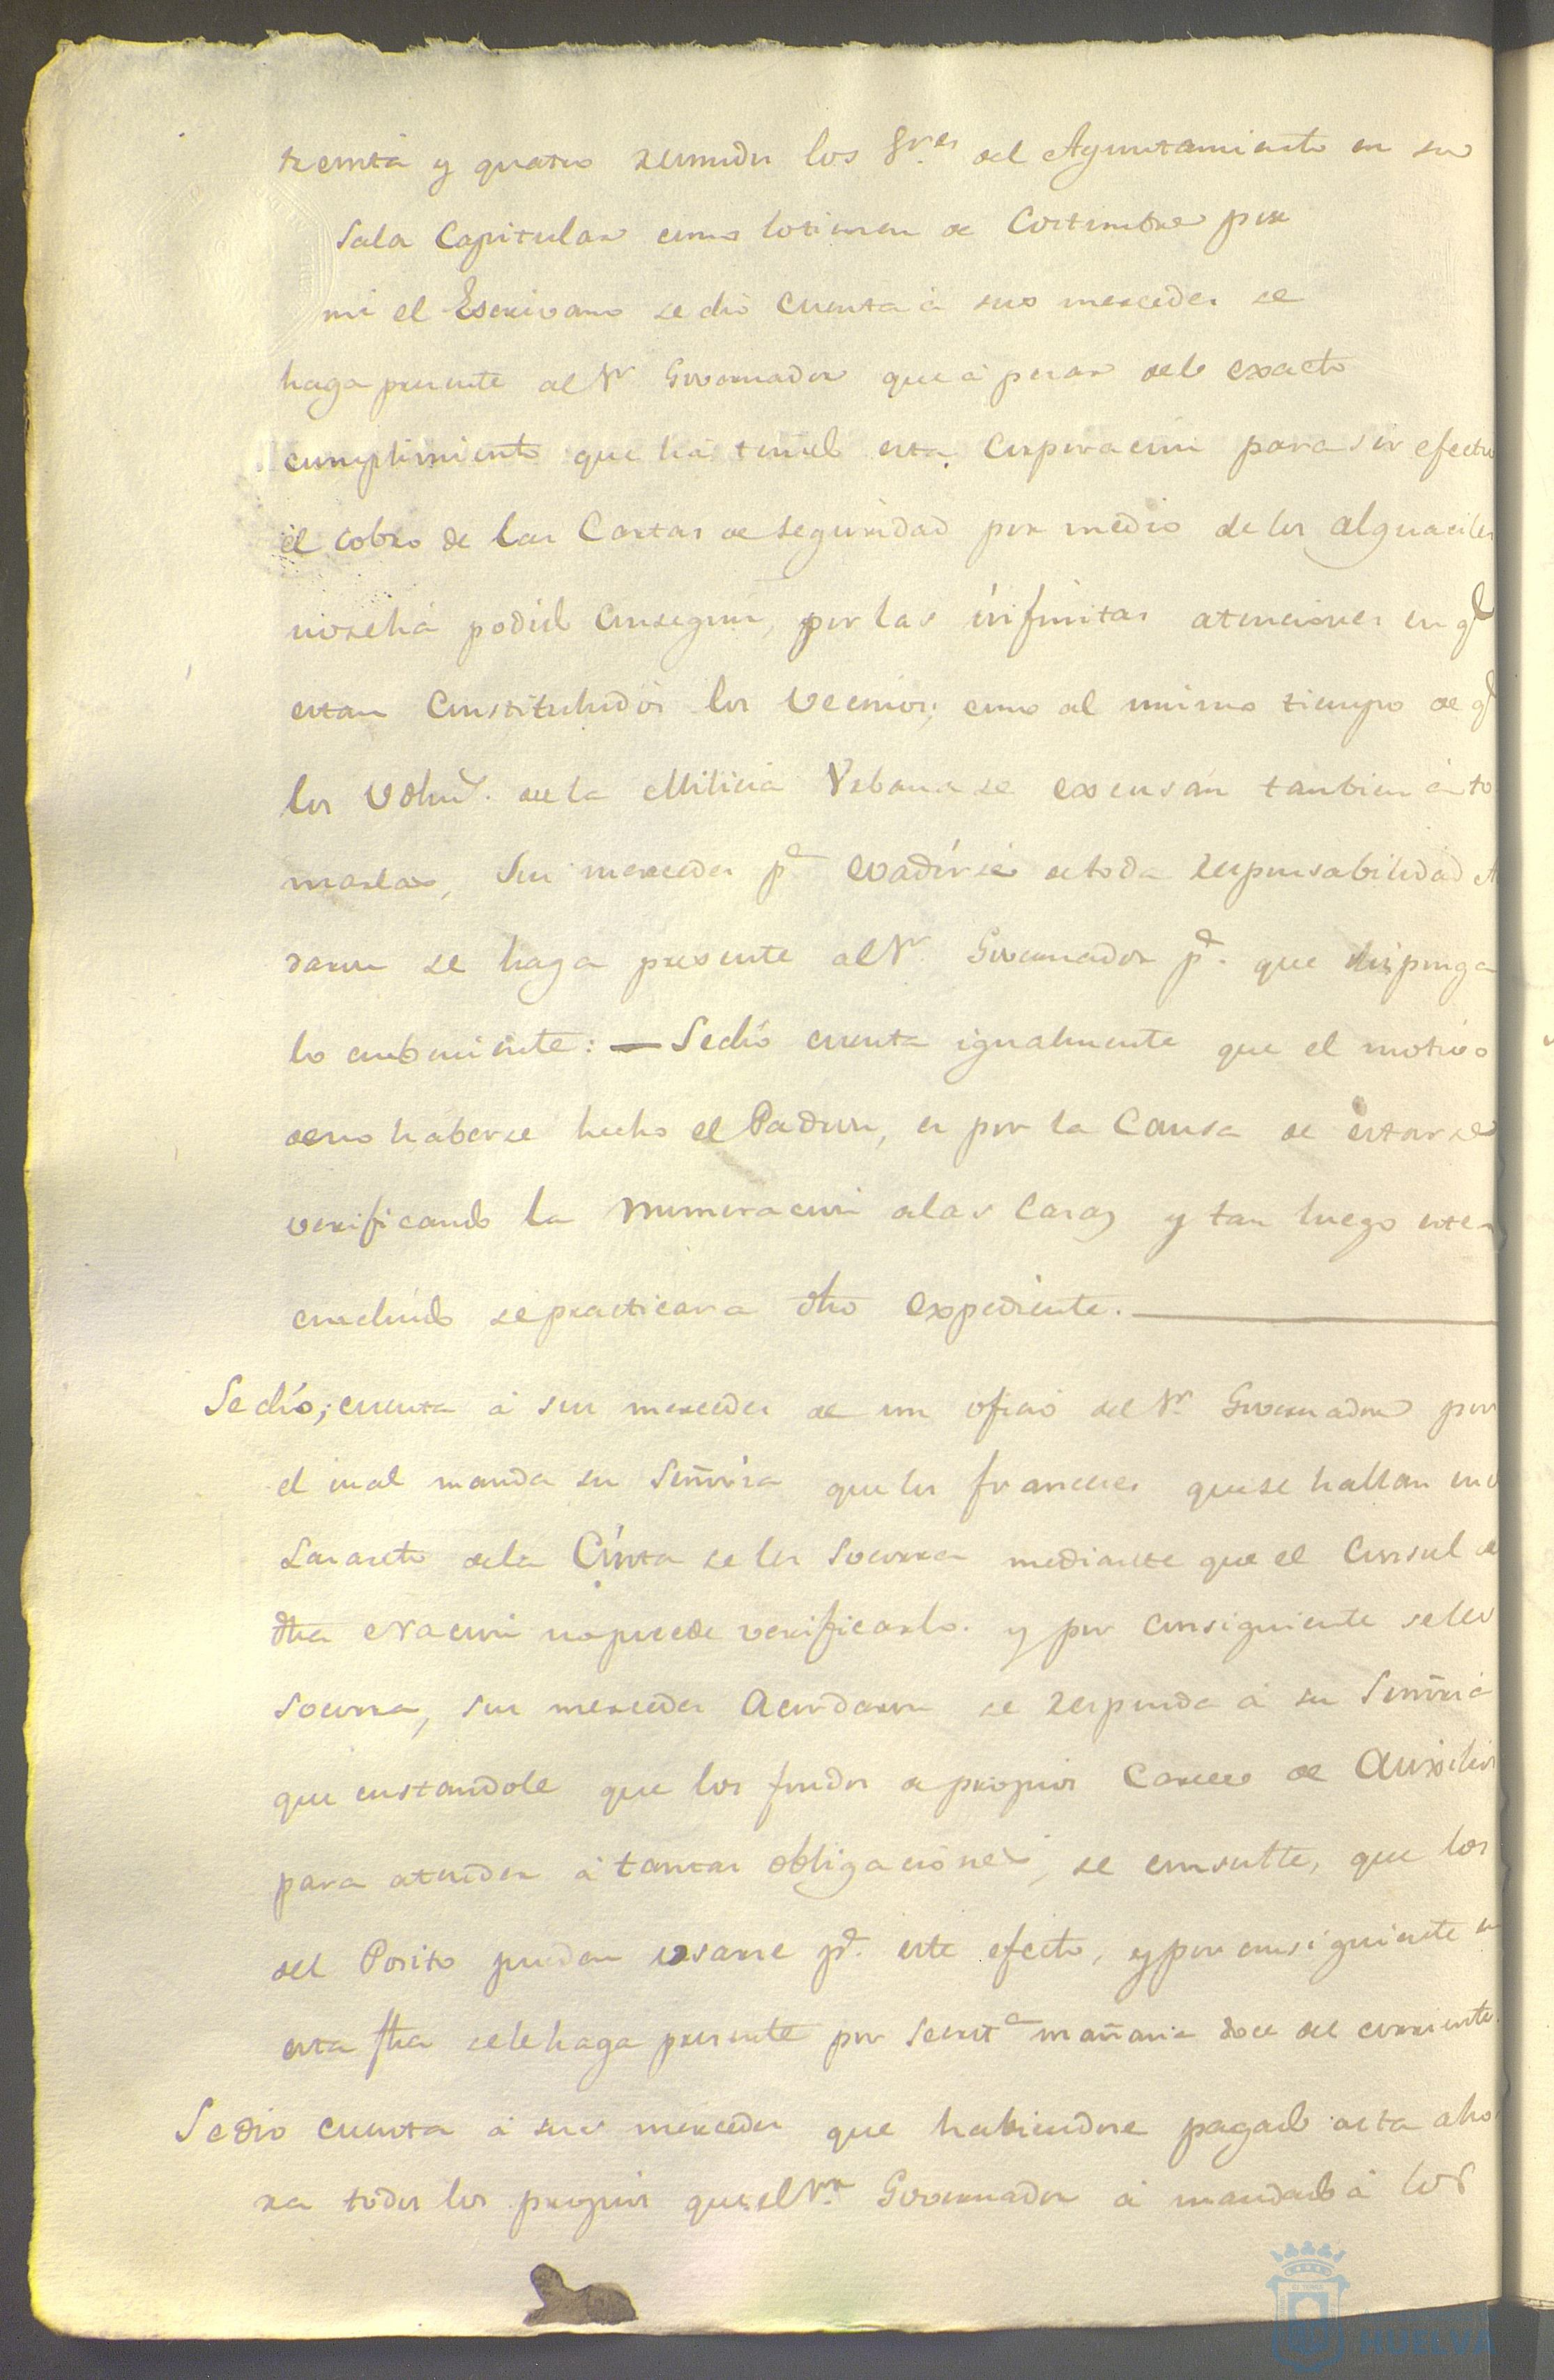 treinta y quatro reunidos los Sres del Ayuntamiento en su
Sala Capitular como lo tienen de Costumbre por
mi el Escrivano se dio Cuenta à sus mercedes se
haga presente al Sr Governador que à pesar del exacto
cumplimiento que há tenido esta Corporacion para ser efectu
el cobro de las Cartas de seguridad por medio de los alguaciles
no se há podido Conseguir, por las infinitas atenciones en q.e
estan Constituhidos los Vecinos; como al mismo tiempo de q.e
los Volun.s de la Milicia Vrbana se excusan tambien à to
marlas, Sus mercedes p.a evadirse de toda responsabilidad A
daron se haga presente al Sr. Governador p.a que disponga
lo combeniente: — Se dió cuenta igualmente que el motivo
de no haberse hecho el Padron, es por la Causa de estarse
verificando la Numeracion de las Casas y tan luego este
concluido se practicara dho expediente. —
Se dió; cuenta à sus mercedes de un oficio del Sr. Governador por
el cual manda su Señoria que los franceses que se hallan en el
Lazareto de la Cinta se les Socorra mediante que el Consul de
dha Nacion no puede verificarlo. y por consiguiente se les
Socorra, sus mercedes Acordaron se responda à su Señoria
que constandole que los fondos de propios Carece de Auxilios
para atender à tantas obligaciones, se consulte, que los
del Posito puedan usarse p.a este efecto, y por consiguiente en
esta fha se le haga presente por Secret.a mañana doce del corriente.
Se dio cuenta à sus mercedes que habiendose pagado asta aho
ra todos los propios que el Sr. Governador à mandado à los
HUELVA